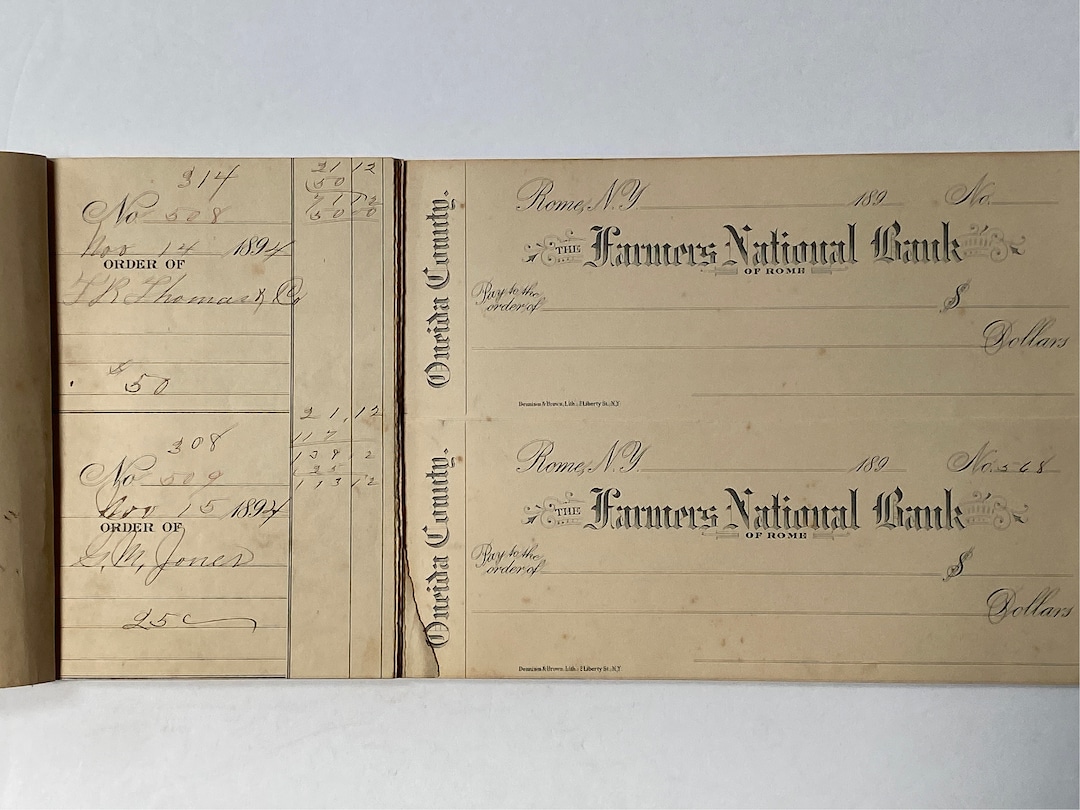 314
No 508
Nov 14 1894
ORDER OF
T R Thomas & Co
$ 50
21 12
50
71 12
50 00
308
No 509
Nov 15 1894
ORDER OF
G. M. Jones
25
21,12
117
138 12
25
113 12
Oneida County.
Rome, N.Y. 189 No.
THE Farmers National Bank
OF ROME
Pay to the
order of $
Dollars
Dennison & Brown, Lith., 2 Liberty St., N.Y.
Oneida County.
Rome, N.Y. 189 No. 568
THE Farmers National Bank
OF ROME
Pay to the
order of $
Dollars
Dennison & Brown, Lith., 2 Liberty St., N.Y.